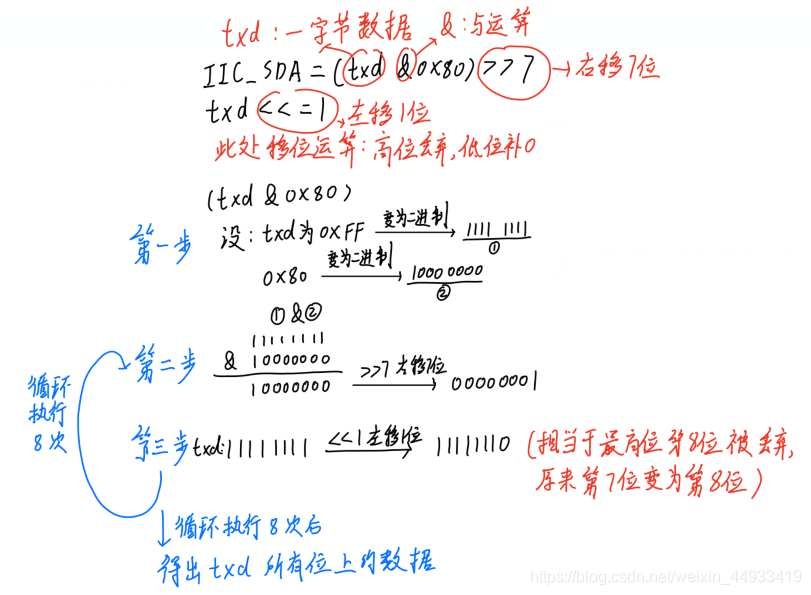 txd：一字节数据 &：与运算
IIC_SDA=(txd &0x80)>>7 →右移7位
txd <<=1 左移1位
此处移位运算：高位丢弃,低位补0
(txd & 0x80)
第一步 设：txd为0xFF 变为二进制 1111 1111 ①
0x80 变为二进制 1000 0000 ②
①&②
11111111
第二步 & 10000000
10000000 >>7 右移7位 00000001
循环执行8次
第三步 txd:11111111 <<1左移1位 11111110 (相当于最高位第8位被丢弃,
原来第7位变为第8位)
循环执行8次后
得出txd 所有位上的数据
https://blog.csdn.net/weixin_44933419